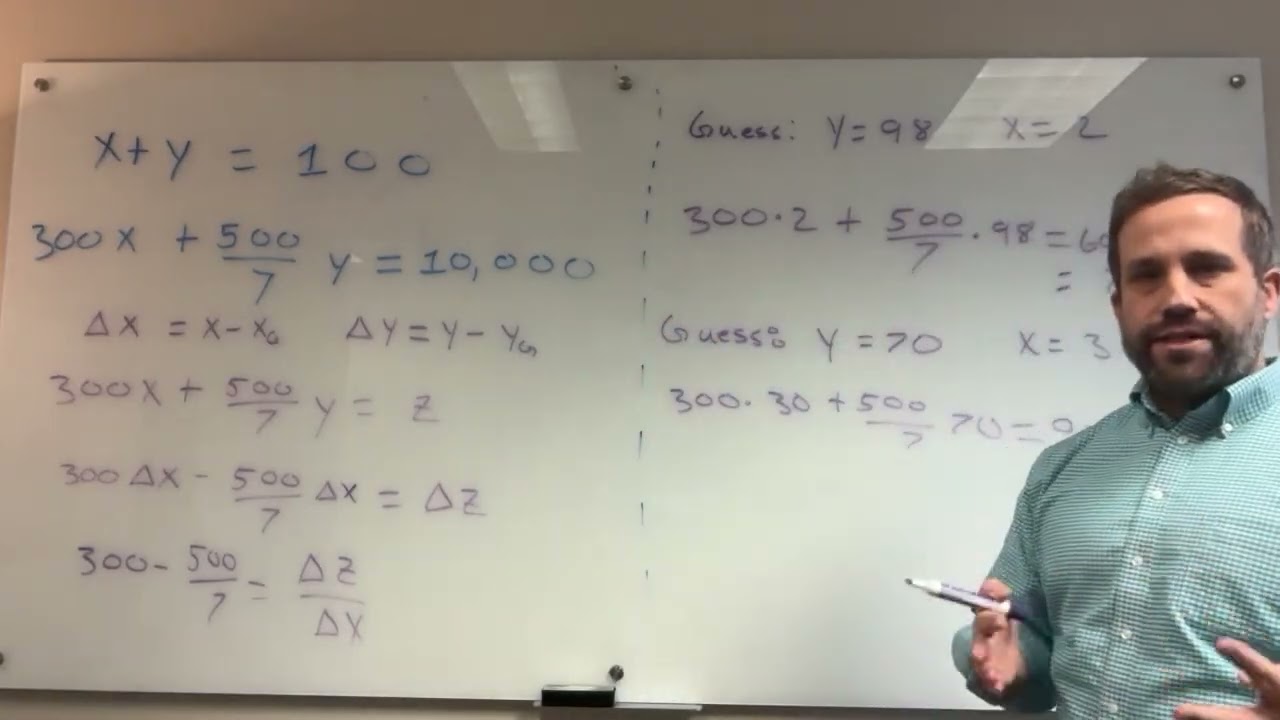 X+Y = 100
300X + 500/7 Y = 10,000
ΔX = X-X_G ΔY = Y-Y_G
300X + 500/7 Y = Z
300ΔX - 500/7 ΔX = ΔZ
300 - 500/7 = ΔZ/ΔX
Guess: Y=98 X=2
300·2 + 500/7 ·98 = 
=
Guess: Y=70 X=3
300·30 + 500/7 70 =